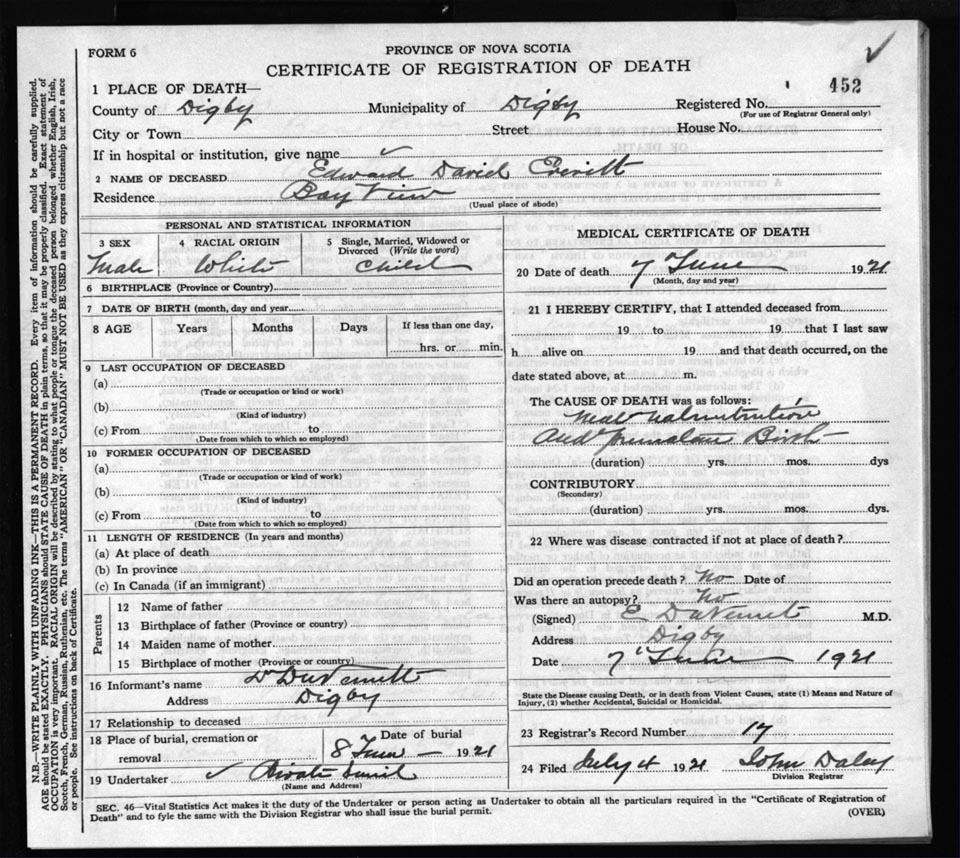 FORM 6
PROVINCE OF NOVA SCOTIA
CERTIFICATE OF REGISTRATION OF DEATH
1 PLACE OF DEATH—
452
County of Digby Municipality of Digby Registered No.
(For use of Registrar General only)
City or Town Street House No.
If in hospital or institution, give name
2 NAME OF DECEASED Edward David Everitt
Residence Bay View
(Usual place of abode)
PERSONAL AND STATISTICAL INFORMATION
3 SEX 4 RACIAL ORIGIN 5 Single, Married, Widowed or Divorced (Write the word)
Male White Child
6 BIRTHPLACE (Province or Country)
7 DATE OF BIRTH (month, day and year)
8 AGE Years Months Days If less than one day,
hrs. or min.
9 LAST OCCUPATION OF DECEASED
(a)
(Trade or occupation or kind or work)
(b)
(Kind of industry)
(c) From to
(Date from which to which so employed)
10 FORMER OCCUPATION OF DECEASED
(a)
(Trade or occupation or kind of work)
(b)
(Kind of industry)
(c) From to
(Date from which to which so employed)
11 LENGTH OF RESIDENCE (In years and months)
(a) At place of death
(b) In province
(c) In Canada (if an immigrant)
Parents
12 Name of father
13 Birthplace of father (Province or country)
14 Maiden name of mother
15 Birthplace of mother (Province or country)
16 Informant's name Dr
Address Digby
17 Relationship to deceased
18 Place of burial, cremation or removal Date of burial
8 June 1921
19 Undertaker Private
(Name and Address)
MEDICAL CERTIFICATE OF DEATH
20 Date of death 7 June 1921
(Month, day and year)
21 I HEREBY CERTIFY, that I attended deceased from
19 to 19 that I last saw
h alive on 19 and that death occurred, on the
date stated above, at m.
The CAUSE OF DEATH was as follows:
Mal nutrition
and Birth
(duration) yrs. mos. dys
CONTRIBUTORY
(Secondary)
(duration) yrs. mos. dys.
22 Where was disease contracted if not at place of death?
Did an operation precede death? No Date of
Was there an autopsy? No
(Signed) E M.D.
Address Digby
Date 7 June 1921
State the Disease causing Death, or in death from Violent Causes, state (1) Means and Nature of
Injury, (2) whether Accidental, Suicidal or Homicidal.
23 Registrar's Record Number 17
24 Filed July 4 1921 John Daley
Division Registrar
SEC. 46—Vital Statistics Act makes it the duty of the Undertaker or person acting as Undertaker to obtain all the particulars required in the "Certificate of Registration of
Death" and to fyle the same with the Division Registrar who shall issue the burial permit.
(OVER)
N.B.—WRITE PLAINLY WITH UNFADING INK—THIS IS A PERMANENT RECORD. Every item of information should be carefully supplied.
AGE should be stated EXACTLY. PHYSICIANS should STATE CAUSE OF DEATH in plain terms, so that it may be properly classified. Exact statement of
OCCUPATION is very important. RACIAL ORIGIN will be described by stating to what people or tongue the deceased person belonged whether English, Irish,
Scotch, French, German, Russian, Ruthenian, etc. The terms "AMERICAN" OR "CANADIAN" MUST NOT BE USED as they express citizenship but not a race
or people. See instructions on back of Certificate.